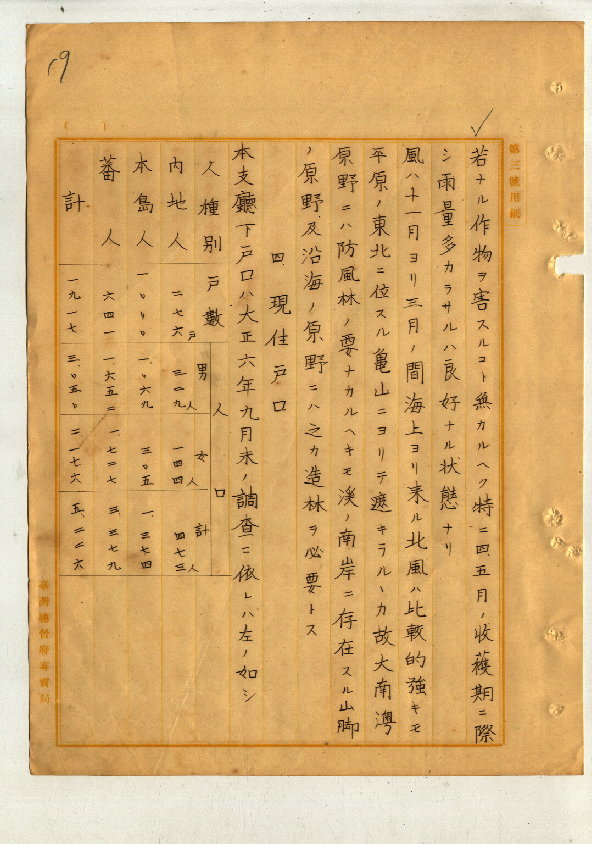 19
第三號用紙
若ナル作物ヲ害スルコト無カルヘク特ニ四、五月ノ收穫期ニ際
シ雨量多カラサルハ良好ナル状態ナリ
風ハ十一月ヨリ三月ノ間海上ヨリ来ル北風ハ比較的強キモ
平原ノ東北ニ位スル亀山ニヨリテ遮キラルヽカ故大南澳
原野ニハ防風林ノ要ナカルヘキモ溪ノ南岸ニ存在スル山脚
ノ原野及沿海ノ原野ニハ之カ造林ヲ必要トス
四、現住戸口
本支廳下戸口ハ大正六年九月末ノ調査ニ依レハ左ノ如シ
人種別 戸數 人口 男 女 計
内地人 二七六戸 三二九人 一四四人 四七三人
本島人 一、〇〇〇 一、〇六九 三〇五 一、三七四
蕃人 六四一 一、六五二 一、七二七 三、三七九
計 一九一七 三、〇五〇 二、一七六 五、二二六
臺灣總督府專賣局